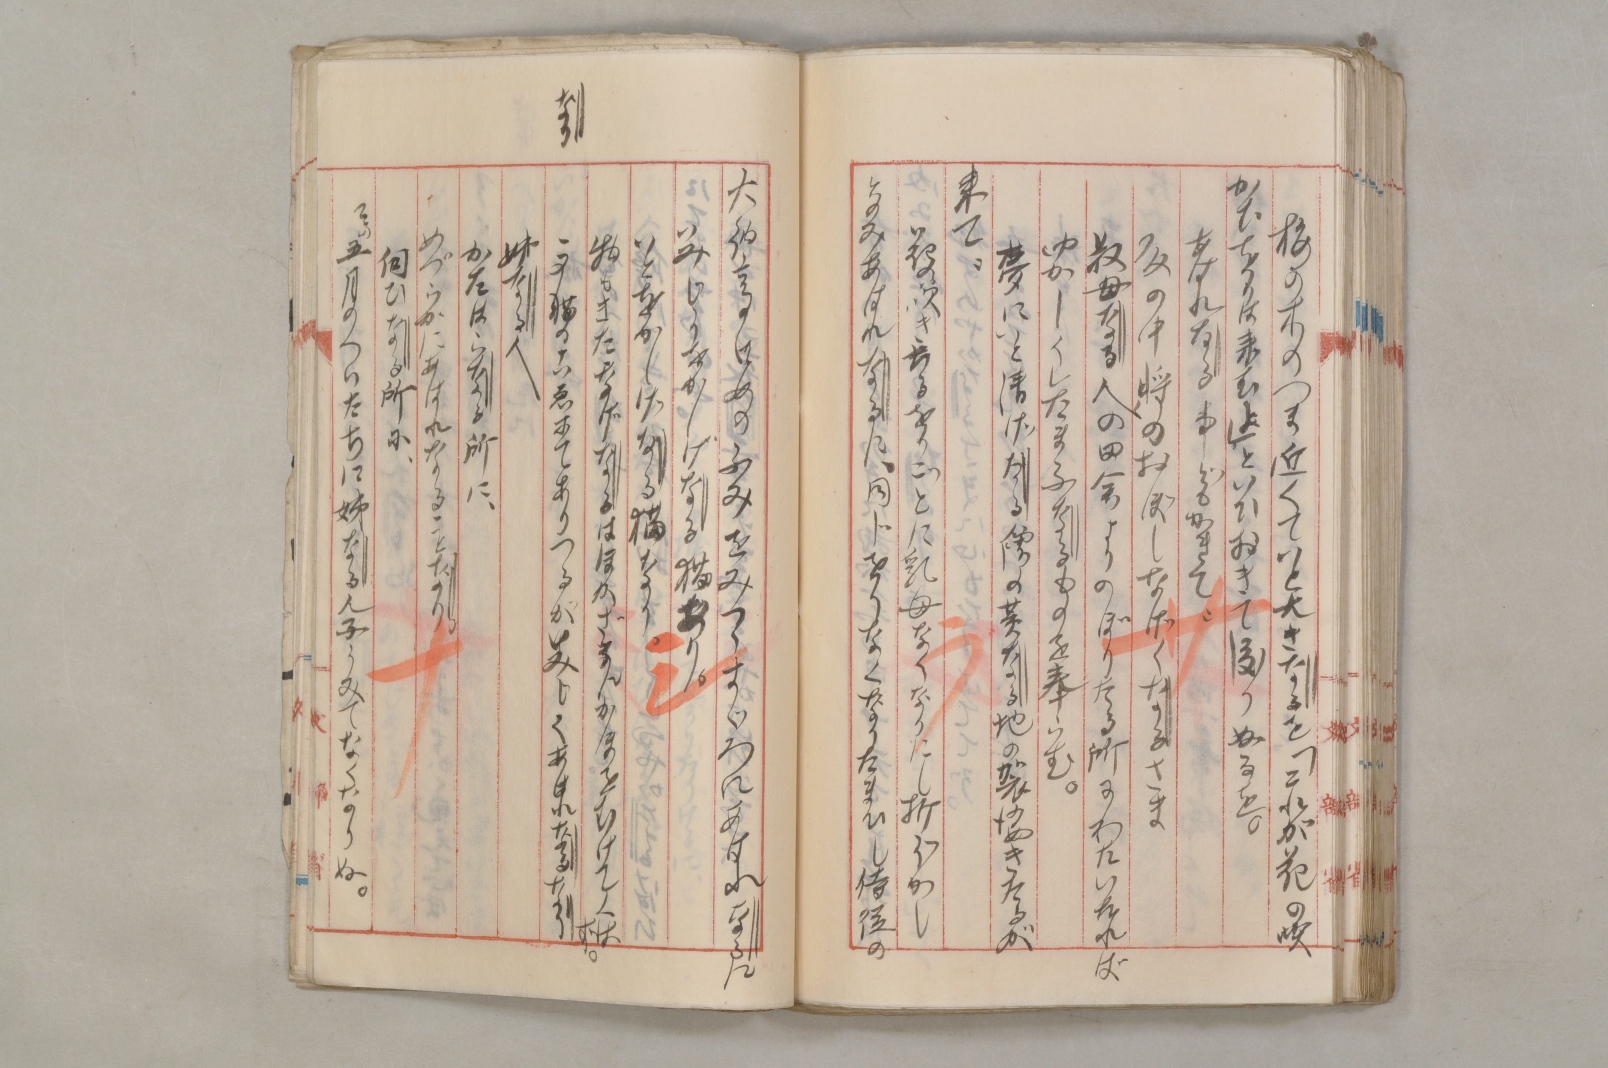 梅の木のつま近くていと大きなるをこれが花の咲
かむをりは来むよといひおきて渡りぬるを。
あはれなる事どもかきて
殿の中将のおぼしなげくなるさま
叔母なる人の田舎よりのぼりたる所にわたいたれば
ゆかしくしたまふなるものを奉らむ。
夢にいと清げなる僧の黄なる地の袈裟きたるが
来て、
花の咲き散るをりごとに乳母なくなりにし折ぞかし
とのみあはれなるに、同じをりなくなりたまひし侍従の
大納言の御むすめのふみをみつゝすゞろにあはれなるに
いみじうをかしげなる猫あり。
いとをかしげなる猫なり。
物もきたなげなるはほかざまにかほをむけてくはず。
この猫のこゑにてありつるが、いみじくあはれなるなり
なる
姉なる人
かたはらなる所に、
めづらかにあはれなることなり。
向ひなる所に、
その五月のついたちに姉なる人子うみてなくなりぬ。
サ
ラ
シ
ナ